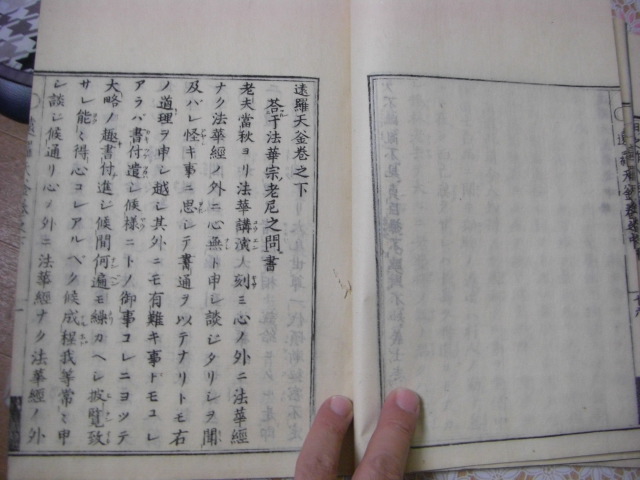 遠羅天釜巻之下
答于法華宗老尼之問書
老夫當秋ヨリ法華講演ノ刻ミ心ノ外ニ法華經
ナク法華經ノ外ニ心無ト申シ談シタリシヲ聞
及バレ怪キ事ニ思シテ書通ヲ以テナリトモ右
ノ道理ヲ申シ越シ其外ニモ有難キ事ドモコレ
アラバ書付遣シ候様ニトノ御事コレニヨツテ
大略ノ趣書付進シ候間何遍モ繰カヘシ披覧致
サレ能ク得心コレアルベク候成程我等常々申
シ談シ候通リ心ノ外ニ法華經ナク法華經ノ外